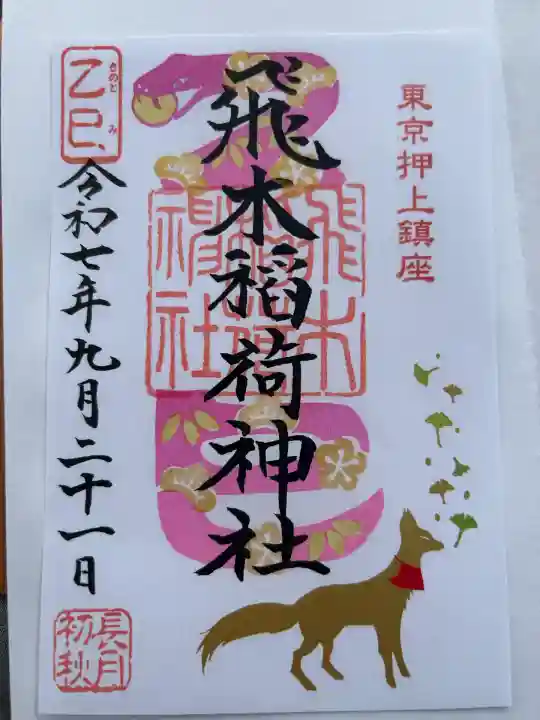 東京押上鎮座
飛木稲荷神社
飛木
稲荷
神社
乙巳
きのと み
令和七年九月二十一日
長月
初秋